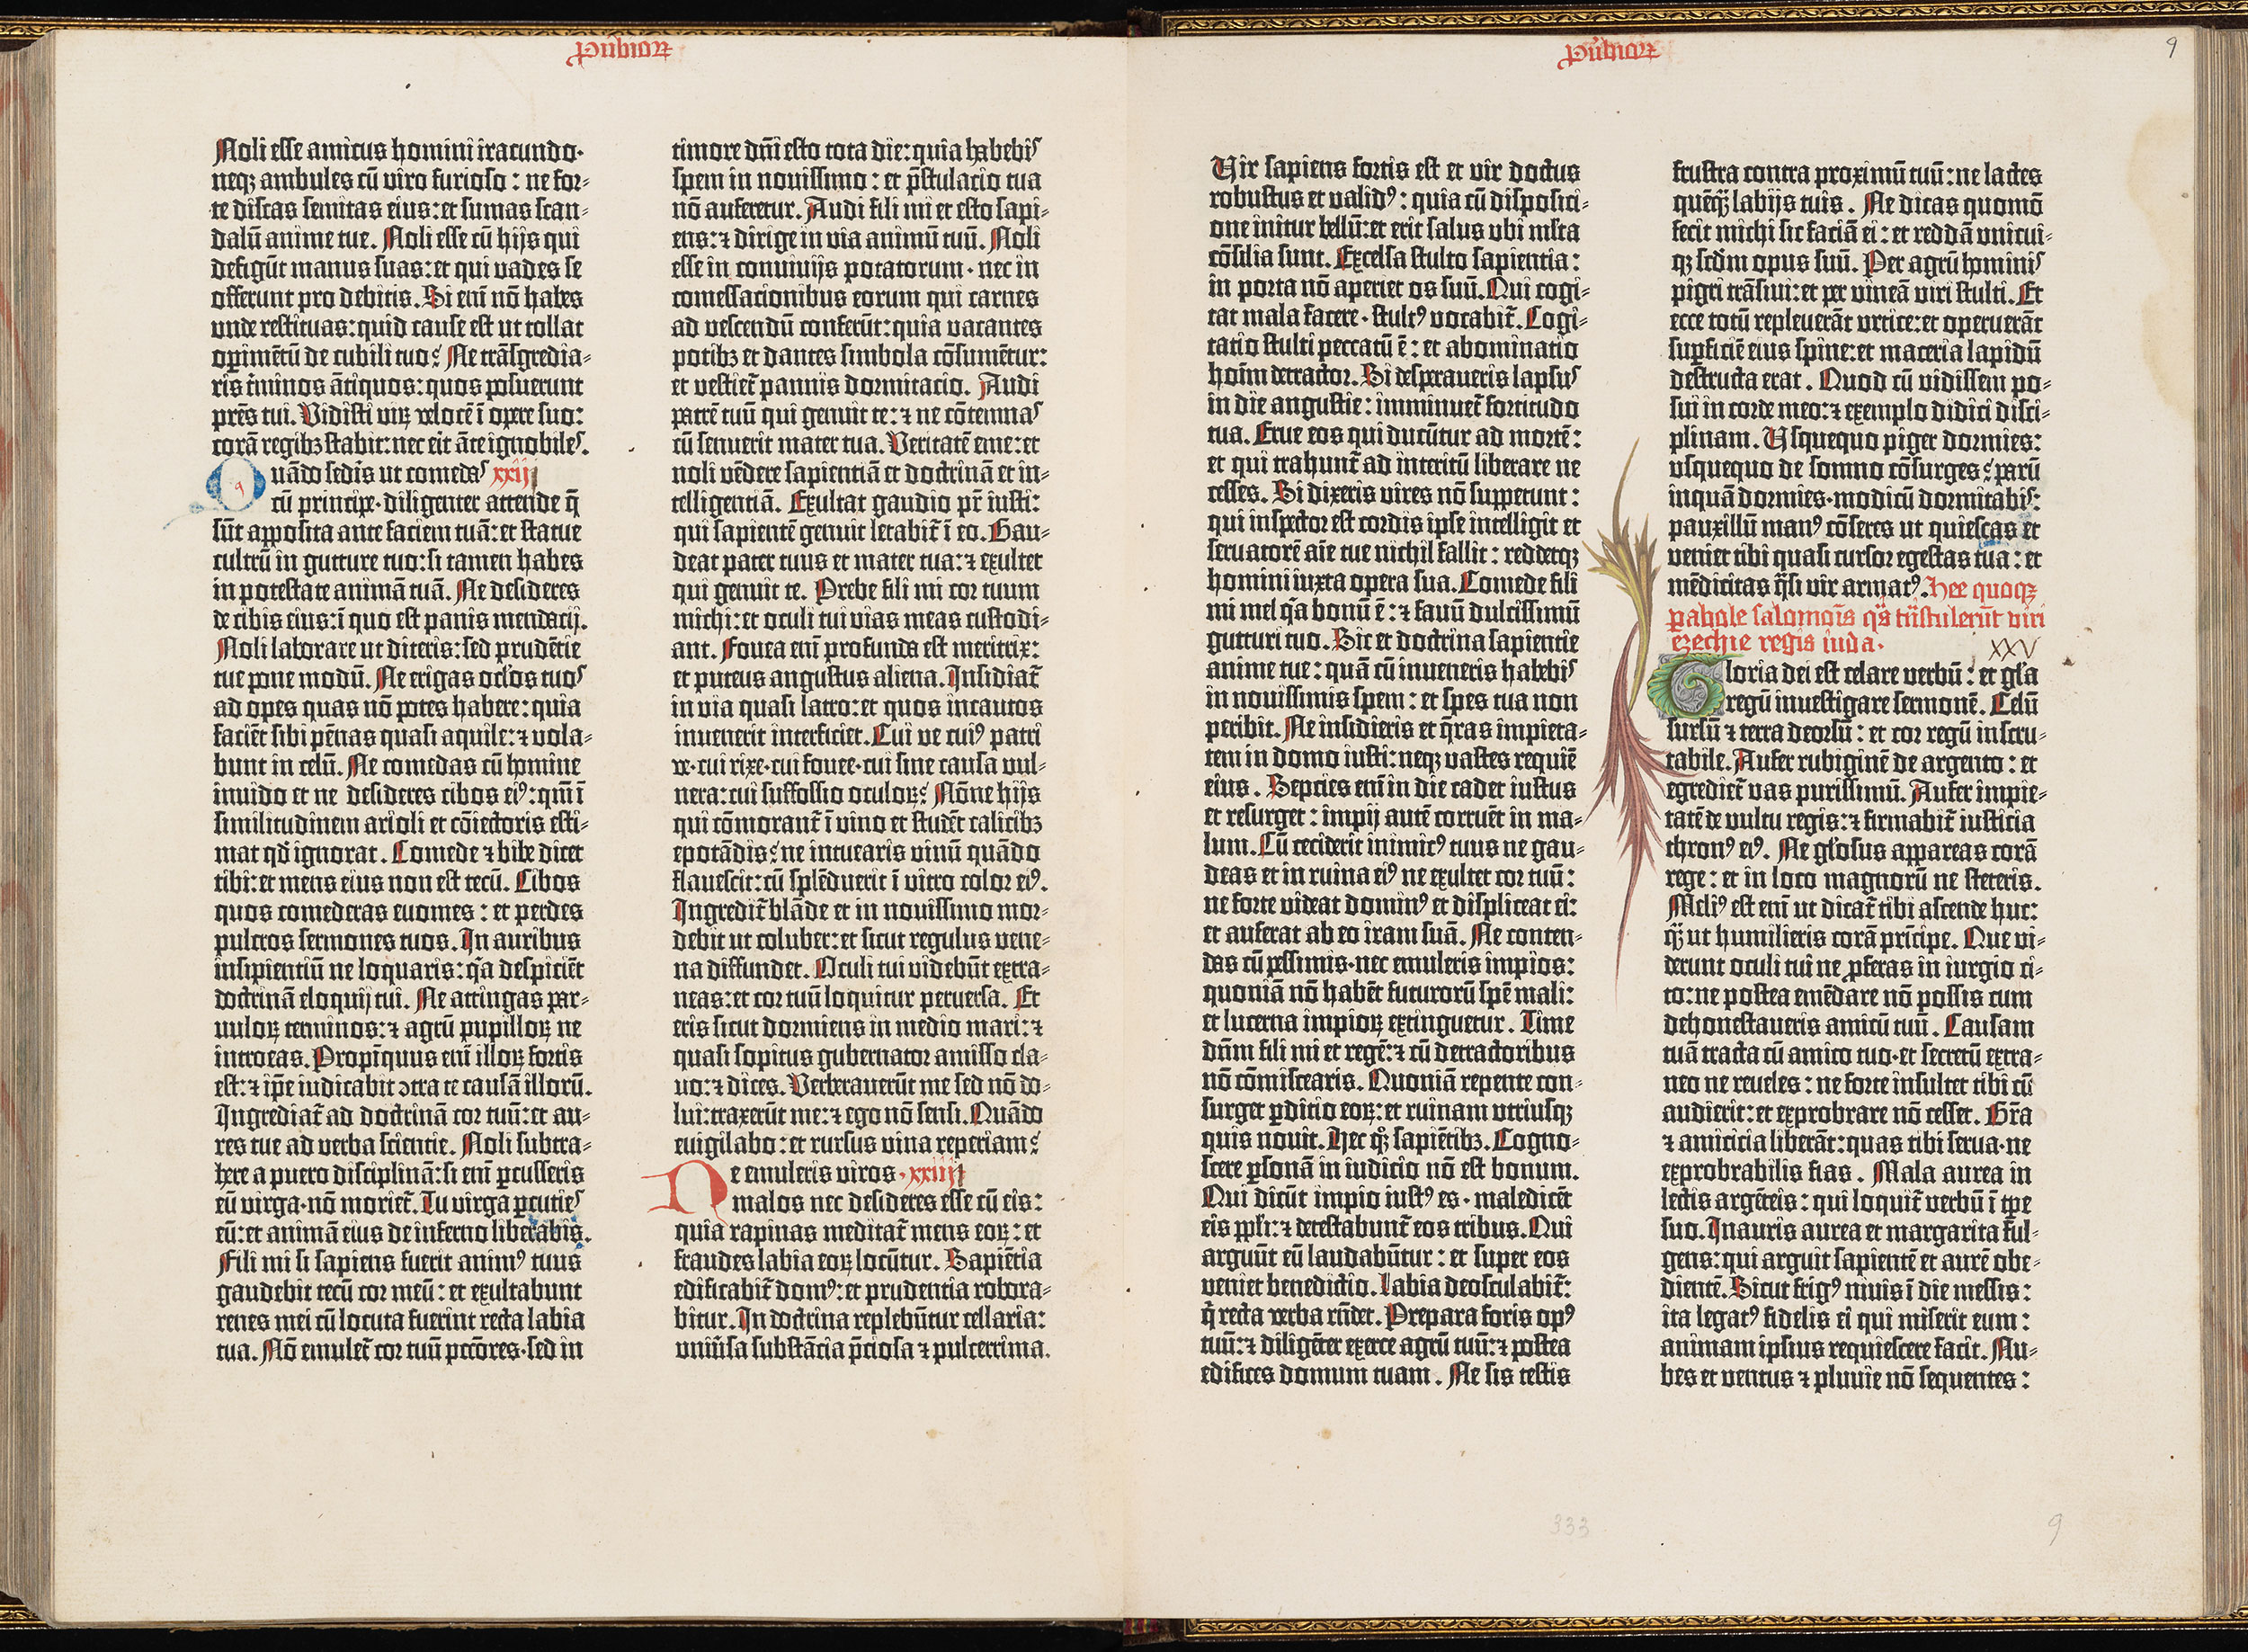 Prouerbiorum
Noli esse amicus homini iracundo·
neqꝫ ambules cū viro furioso : ne for-
te discas semitas eius: et sumas scan-
dalū anime tue. Noli esse cū hijs qui
defigūt manus suas: et qui vades se
offerunt pro debitis. Si enī nō habes
unde restituas: quid cause est ut tollat
operimētū de cubili tuo? Ne trāsgredia-
ris t̄minos ātiquos: quos posuerunt
pr̄es tui. Vidisti virꝫ velocē ī opere suo:
corā regibꝫ stabit: nec erit āte ignobiles.
Quādo sedis ut comedas xxiij
cū principe· diligenter attende q̄
sūt apposita ante faciem tuā: et statue
cultrū in gutture tuo: si tamen habes
in potestate animā tuā. Ne desideres
de cibis eius: ī quo est panis mendacij.
Noli laborare ut diteris: sed prudētie
tue pone modū. Ne erigas oc̄los tuos
ad opes quas nō potes habere: quia
faciēt sibi pēnas quasi aquile: ⁊ vola-
bunt in celū. Ne comedas cū homine
inuido et ne desideres cibos eiꝰ: qm̄ ī
similitudinem arioli et cōiectoris esti-
mat qd̄ ignorat. Comede ⁊ bibe dicet
tibi: et mens eius non est tecū. Cibos
quos comederas euomes : et perdes
pulcros sermones tuos. In auribus
insipientiū ne loquaris: q̄a despiciēt
doctrinā eloquij tui. Ne attingas par-
uuloꝝ terminos: ⁊ agrū pupilloꝝ ne
introeas. Propīquus enī illoꝝ fortis
est: ⁊ ip̄e iudicabit ↄtra te causā illorū.
Ingrediat̄ ad doctrinā cor tuū: et au-
res tue ad verba scientie. Noli subtra-
here a puero disciplinā: si enī ꝑcusseris
eū virga· nō moriet̄. Tu virga ꝑcuties
eū: et animā eius de inferno liberabis.
Fili mi si sapiens fuerit animꝰ tuus
gaudebit tecū cor meū: et exultabunt
renes mei cū locuta fuerint recta labia
tua. Nō emulet̄ cor tuū pctōres· sed in
timore dn̄i esto tota die: quia habebis
spem in nouissimo : et p̄stulacio tua
nō auferetur. Audi fili mi et esto sapi-
ens: ⁊ dirige in via animū tuū. Noli
esse in conuiuijs potatorum· nec in
comessacionibus eorum qui carnes
ad vescendū conferūt: quia vacantes
potibꝫ et dantes simbola cōsumētur:
et vestiet̄ pannis dormitacio. Audi
patrē tuū qui genuit te: ⁊ ne cōtemnas
cū senuerit mater tua. Veritatē eme: et
noli vēdere sapientiā et doctrinā et in-
telligentiā. Exultat gaudio pr̄ iusti:
qui sapientē genuit letabit̄ ī eo. Gau-
deat pater tuus et mater tua: ⁊ exultet
qui genuit te. Prebe fili mi cor tuum
michi: et oculi tui vias meas custodi-
ant. Fouea enī profunda est meritrix:
et puteus angustus aliena. Insidiat̄
in via quasi latro: et quos incautos
inuenerit interficiet. Cui ve cuiꝰ patri
ve· cui rixe· cui fouee· cui sine causa vul-
nera: cui suffossio oculoꝝ? Nōne hijs
qui cōmorant̄ ī vino et studēt calicibꝫ
epotādis? ne intuearis vinū quādo
flauescit: cū splēduerit ī vitro color eiꝰ.
Ingredit̄ blāde et in nouissimo mor-
debit ut coluber: et sicut regulus vene-
na diffundet. Oculi tui videbūt extra-
neas: et cor tuū loquitur peruersa. Et
eris sicut dormiens in medio mari: ⁊
quasi sopitus gubernator amisso cla-
uo: ⁊ dices. Verberauerūt me sed nō do-
lui: traxerūt me: ⁊ ego nō sensi. Quādo
euigilabo: et rursus vina reperiam?
Ne emuleris viros· xxiiij
malos nec desideres esse cū eis:
quia rapinas meditat̄ mens eoꝝ: et
fraudes labia eoꝝ locūtur. Sapiētia
edificabit̄ domꝰ: et prudentia robora-
bitur. In doctrina replebūtur cellaria:
uniūsa substācia p̄ciosa ⁊ pulcerrima.
Prouerbiorum
9
Vir sapiens fortis est et vir doctus
robustus et validꝰ: quia cū disposici-
one initur bellū: et erit salus ubi mlta
cōsilia sunt. Excelsa stulto sapientia:
in porta nō aperiet os suū. Qui cogi-
tat mala facere· stultꝰ vocabit̄. Cogi-
tatio stulti peccatū ē: et abominatio
hoīm detractor. Si desperaueris lapsus
in die angustie: imminuet̄ fortitudo
tua. Erue eos qui ducūtur ad mortē:
et qui trahunt̄ ad interitū liberare ne
cesses. Si dixeris vires nō suppetunt:
qui inspector est cordis ipse intelligit et
seruatorē aīe tue nichil fallit: reddetqꝫ
homini iuxta opera sua. Comede fili
mi mel q̄a bonū ē: ⁊ fauū dulcissimū
gutturi tuo. Sic et doctrina sapientie
anime tue: quā cū inueneris habebis
in nouissimis spem: et spes tua non
peribit. Ne insidieris et q̄ras impieta-
tem in domo iusti: neqꝫ vastes requiē
eius. Septies enī in die cadet iustus
et resurget: impij autē corruēt in ma-
lum. Cū ceciderit inimicꝰ tuus ne gau-
deas et in ruina eiꝰ ne exultet cor tuū:
ne forte videat dominꝰ et displiceat ei:
et auferat ab eo iram suā. Ne conten-
das cū pessimis· nec emuleris impios:
quoniā nō habēt futurorū spē mali:
et lucerna impioꝝ extinguetur. Time
dn̄m fili mi et regē: ⁊ cū detractoribus
nō cōmiscearis. Quoniā repente con-
surget ꝑditio eoꝝ: et ruinam utriusqꝫ
quis nouit. Hec qꝫ sapiētibꝫ. Cogno-
scere ꝑsonā in iudicio nō est bonum.
Qui dicūt impio iustꝰ es· maledicēt
eis ppl'i: ⁊ detestabunt̄ eos tribus. Qui
arguūt eū laudabūtur: et super eos
veniet benedictio. Labia deosculabit̄:
q̄ recta verba rn̄det. Prepara foris opꝰ
tuū: ⁊ diligēter exerce agrū tuū: ⁊ postea
edifices domum tuam. Ne sis testis
frustra contra proximū tuū: ne lactes
quēq̄ labijs tuis. Ne dicas quomō
fecit michi sic faciā ei: et reddā unicui-
qꝫ scd̄m opus suū. Per agrū hominis
pigri trāsiui: et per vineā viri stulti. Et
ecce totū repleuerāt urtice: et operuerāt
suꝑficiē eius spine: et maceria lapidū
destructa erat. Quod cū vidissem po-
sui in corde meo: ⁊ exemplo didici disci-
plinam. Usquequo piger dormies:
usquequo de somno cōsurges? parū
inquā dormies· modicū dormitabis:
pauxillū manꝰ cōseres ut quiescas et
veniet tibi quasi cursor egestas tua: et
mēdicitas q̄si vir armatꝰ. Hee quoqꝫ
pabole salomōis q̄s trāstulerūt viri
ezechie regis iuda.
XXV
Gloria dei est celare verbū: et gl'a
regū inuestigare sermonē. Celū
sursū ⁊ terra deorsū: et cor regū inscru-
tabile. Aufer rubiginē de argento: et
egrediet̄ vas purissimū. Aufer impie-
tatē de vultu regis: ⁊ firmabit̄ iusticia
thronꝰ eiꝰ. Ne gl'osus appareas corā
rege: et in loco magnorū ne steteris.
Meliꝰ est enī ut dicat̄ tibi ascende huc:
q̄ ut humilieris corā prīcipe. Que vi-
derunt oculi tui ne ꝓferas in iurgio ci-
to: ne postea emēdare nō possis cum
dehonestaueris amicū tuū. Causam
tuā tracta cū amico tuo· et secretū extra-
neo ne reueles: ne forte insultet tibi cū
audierit: et exprobrare nō cesset. Gr̄a
⁊ amicicia liberāt: quas tibi serua· ne
exprobrabilis fias. Mala aurea in
lectis argēteis: qui loquit̄ verbū ī tp̄e
suo. Inauris aurea et margarita ful-
gens: qui arguit sapientē et aurē obe-
dientē. Sicut frigꝰ niuis ī die messis:
ita legatꝰ fidelis ei qui misit eum:
animam ipsius requiescere facit. Nu-
bes et ventus ⁊ pluuie nō sequentes:
333
9